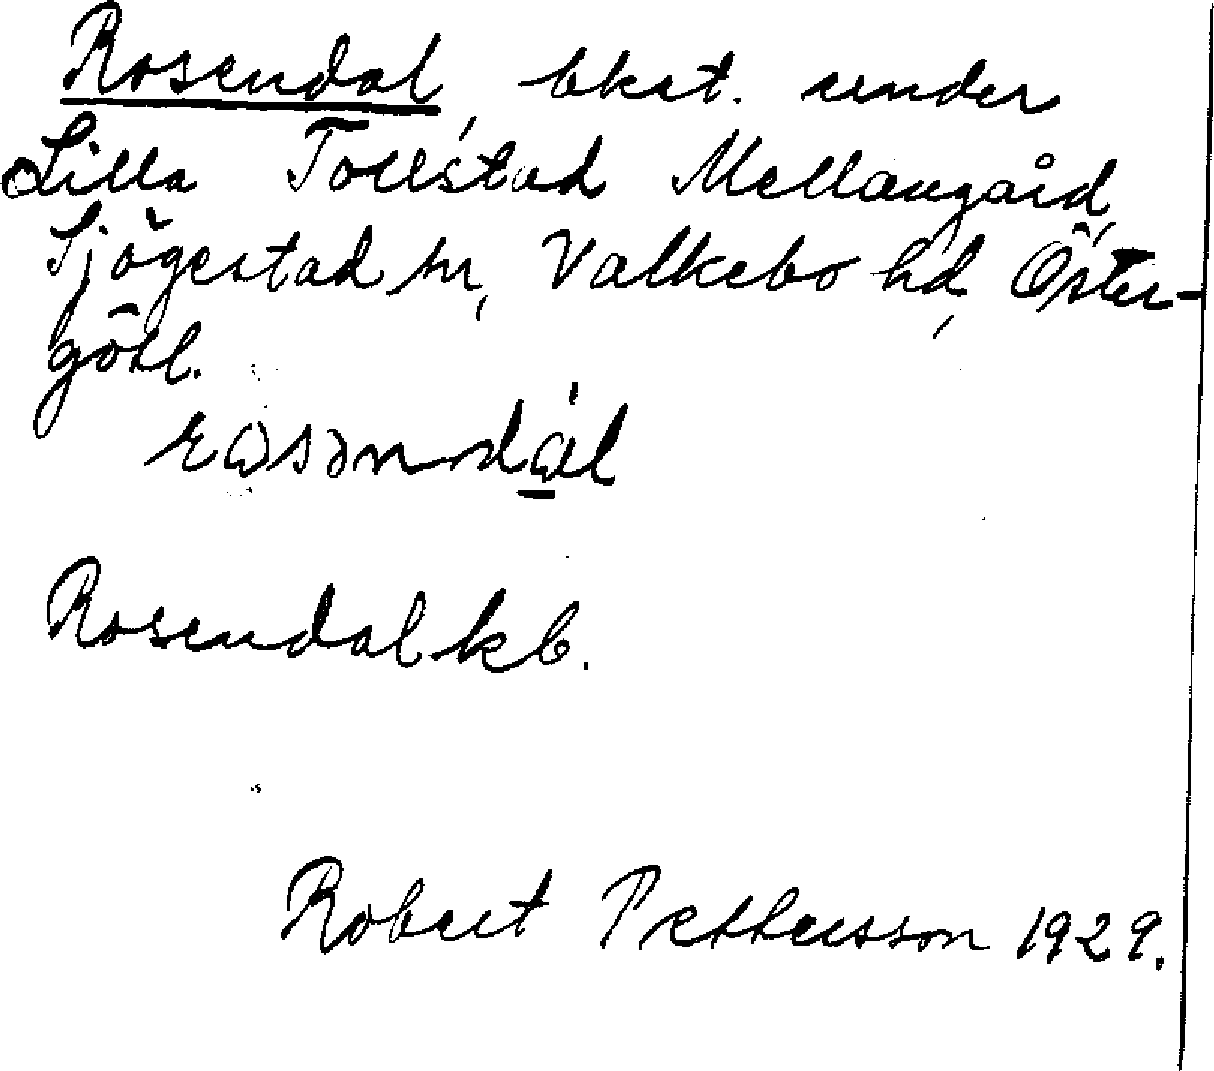 Rosendal, bkst. under
Lilla Tollstad Mellangård,
Sjögestad sn, Valkebo hd, Öster-
götl.
Rosendal kb.
Robert Pettersson 1929.